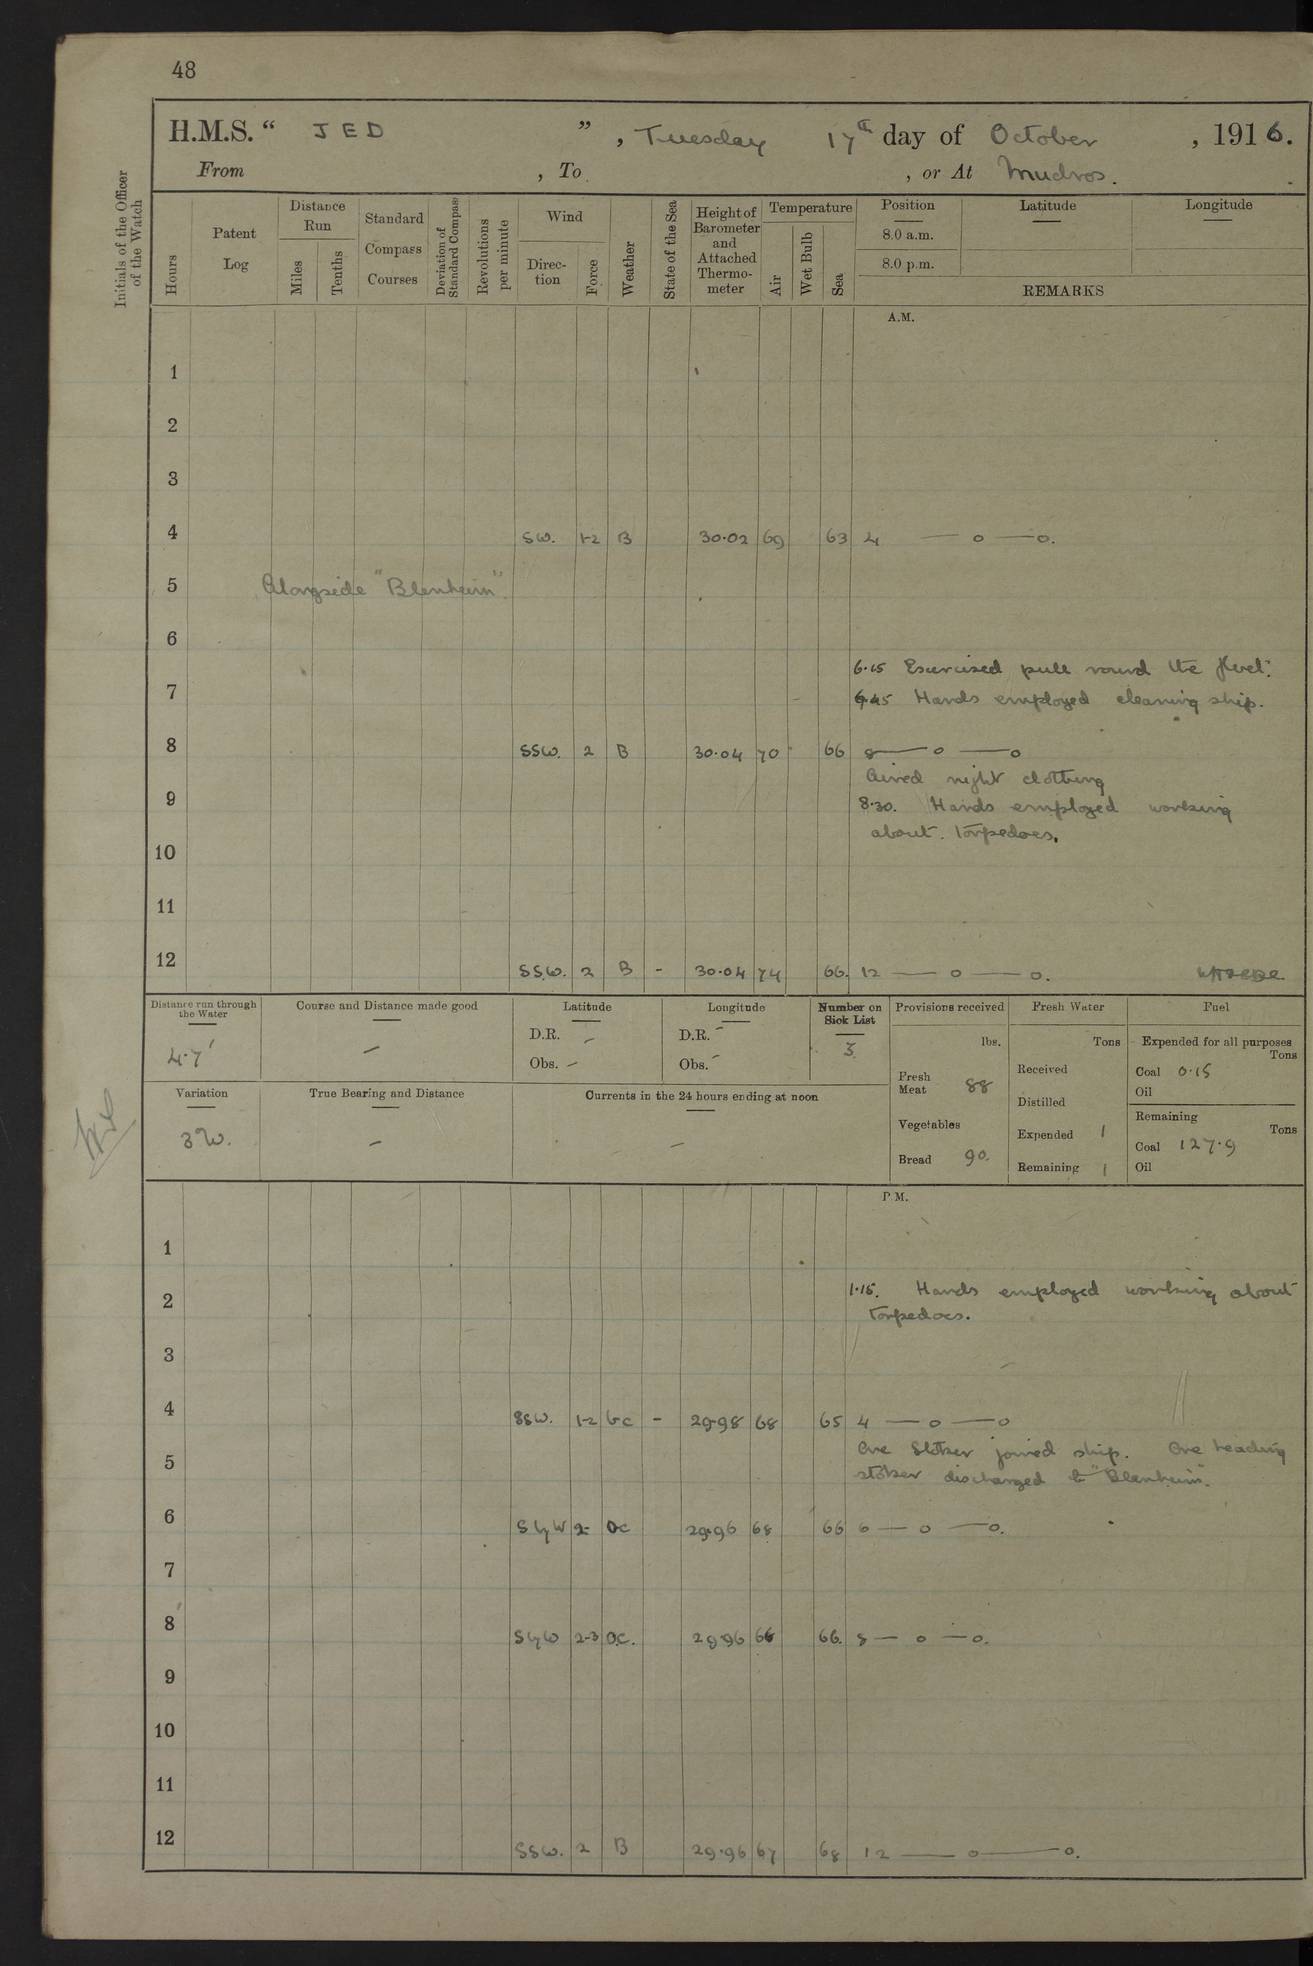 48
H.M.S. " JED " , Tuesday 17th day of October , 1916.
From , To , or At Mudros.
Initials of the Officer of the Watch
Hours
Patent Log
Distance Run
Miles
Tenths
Standard Compass Courses
Deviation of Standard Compass
Revolutions per minute
Wind
Direction
Force
Weather
State of the Sea
Height of Barometer and Attached Thermometer
Temperature
Air
Wet Bulb
Sea
Position
8.0 a.m.
8.0 p.m.
Latitude
Longitude
REMARKS
A.M.
1
2
3
4 SW. 1-2 B 30.02 69 63 4 — o — o.
5 Alongside "Blenheim".
6
6.15 Exercised pull round the fleet.
7 6.45 Hands employed cleaning ship.
8 SSW. 2 B 30.04 70 66 8 — o — o
Aired night clothing
9 8.30. Hands employed working
about torpedoes.
10
11
12 SSW. 2 B - 30.04 74 66. 12 — o — o.
Distance run through the Water
4.7'
Course and Distance made good
—
Latitude
D.R. —
Obs. —
Longitude
D.R. —
Obs. —
Number on Sick List
3
Provisions received
lbs.
Fresh Meat 88
Vegetables
Bread 90.
Fresh Water
Tons
Received
Distilled
Expended 1
Remaining 1
Fuel
Expended for all purposes
Tons
Coal 0.15
Oil
Remaining
Tons
Coal 127.9
Oil
Variation
3 W.
True Bearing and Distance
—
Currents in the 24 hours ending at noon
—
P.M.
1
1.15. Hands employed working about
2 torpedoes.
3
4 SSW. 1-2 bc - 29.98 68 65 4 — o — o
One Stoker joined ship. One leading
5 stoker discharged to "Blenheim".
6 S by W 2 oc 29.96 68 66 6 — o — o.
7
8 S by W 2-3 o.c. 29.96 66 66. 8 — o — o.
9
10
11
12 SSW. 2 B 29.96 67 68 12 — o — o.